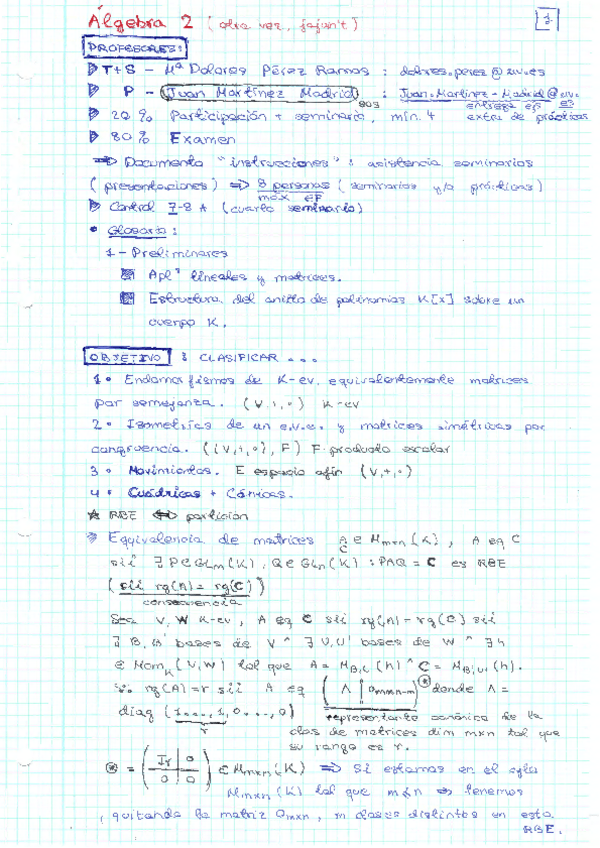 Álgebra 2 (otra vez, jajan't)
1.
PROFESORES:
T+S - Mª Dolores Pérez Ramos : dolores.perez@uv.es
P - Juan Martínez Madrid : Juan.Martinez-Madrid@uv.es
20% Participación + seminario, min. 4 entrega ejs extra de prácticas
80% Examen
⇒ Documento "instrucciones" : asistencia seminarios
(presentaciones) ⇒ 8 personas (seminarios y/o prácticas)
max
Control 7-8 A (cuarto seminario)
• Glosario :
1 - Preliminares
Apl² lineales y matrices.
Estructura del anillo de polinomios K[x] sobre un
cuerpo K.
OBJETIVO : CLASIFICAR ...
1. Endomorfismos de K-ev, equivalentemente matrices
por semejanza. (V,+,·) K-ev
2. Isometrías de un e.v.e. y matrices simétricas por
congruencia. ((V,+,·), F) F producto escalar
3. Movimientos. E espacio afín (V,+,·)
4. Cuádricas + Cónicas.
★ RBE ⇔ partición
Equivalencia de matrices A, C ∈ Mmxn(K), A eq C
sii ∃ P∈GLm(K), Q∈GLn(K) : PAQ = C es RBE
(sii rg(A) = rg(C))
consecuencia
Sea V, W K-ev, A eq C sii rg(A) = rg(C) sii
∃ B, B' bases de V ^ ∃ U, U' bases de W ^ ∃ h
∈ Hom K (V,W) tal que A = MB,U(h) ^ C = MB',U'(h).
rg(A)=r sii A eq (Λ | 0) ⊛ donde Λ =
diag (1,...,1,0...,0)
r
representante canónico de la
clas de matrices dim mxn tal que
su rango es r.
⊛ = (Ir 0 / 0 0) ∈ Mmxn(K) ⇒ Si estamos en el
Mmxn(K) tal que m≤n ⇒ tenemos
, quitando la matriz 0mxn, m clases distintas en esta
RBE.